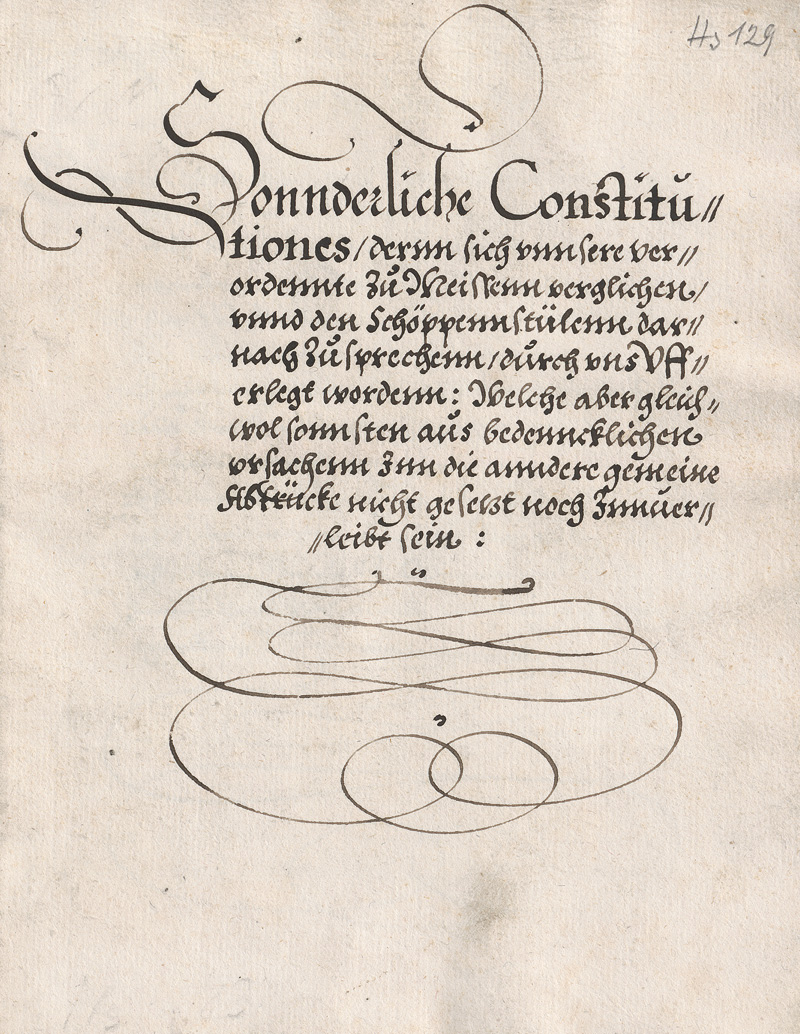 Hs 129
Sonnderliche Constitu//
tiones/ dernn sich vnnsere ver//
ordennte Zů Meissenn verglichen/
vnnd den Schöppennstülenn dar//
nach Zůsprechenn/ důrch vns Vff//
erlegt wordenn: Welche aber gleich//
wol sonnsten aůs bedenncklichen
vrsachenn Inn die anndere gemeine
Abtrücke nicht gesetzt noch Innuer//
//leibt sein :